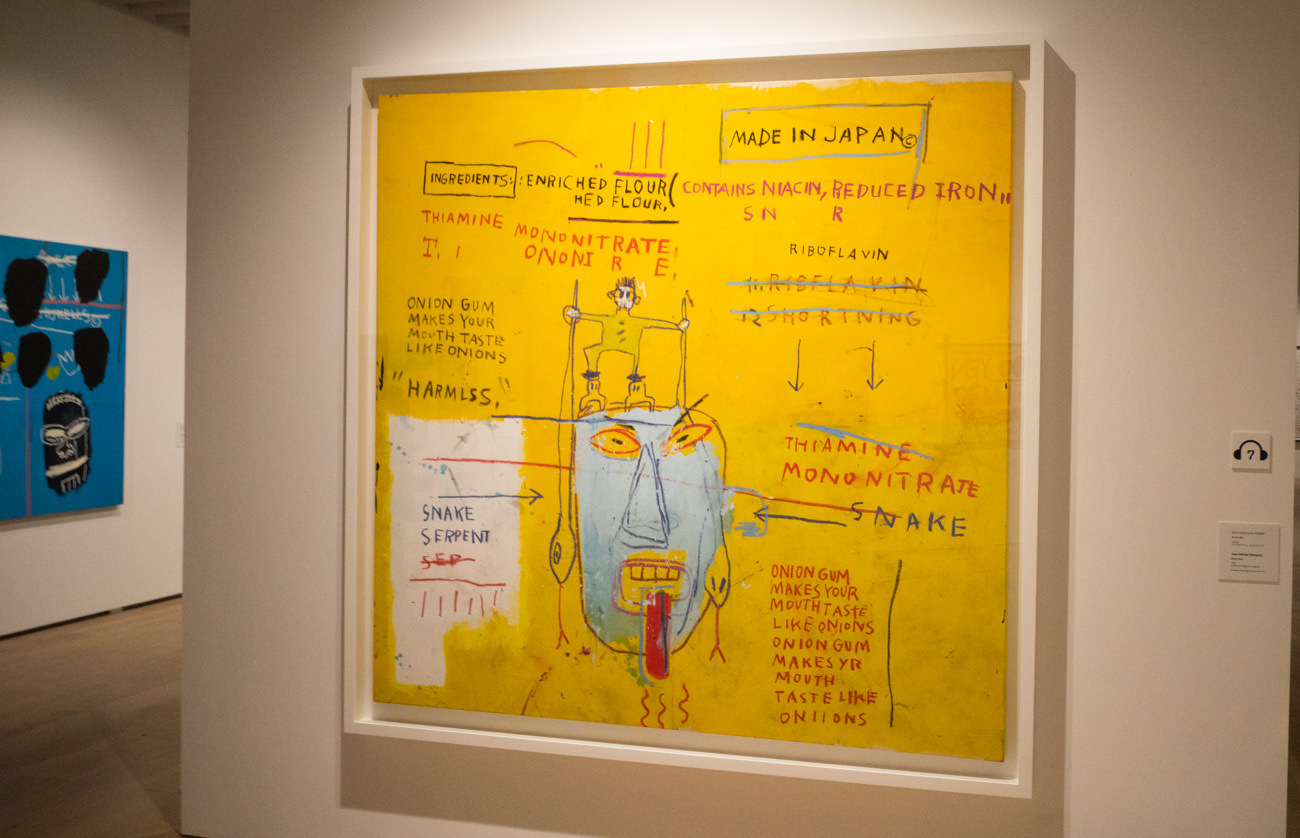 MADE IN JAPAN©
INGREDIENTS: : ENRICHED FLOUR (CONTAINS NIACIN, REDUCED IRON,,
HED FLOUR,
S N R
THIAMINE MONONITRATE,
T, I ONONI R E,
RIBOFLAVIN
11. RIBFLAVIN
12 SHORTNING
ONION GUM
MAKES YOUR
MOUTH TASTE
LIKE ONIONS
"HARMLSS."
THIAMINE
MONONITRATE
SNAKE
SNAKE
SERPENT
SEP
ONION GUM
MAKES YOUR
MOUTH TASTE
LIKE ONIONS
ONION GUM
MAKES YR
MOUTH
TASTE LIKE
ONIIONS
7